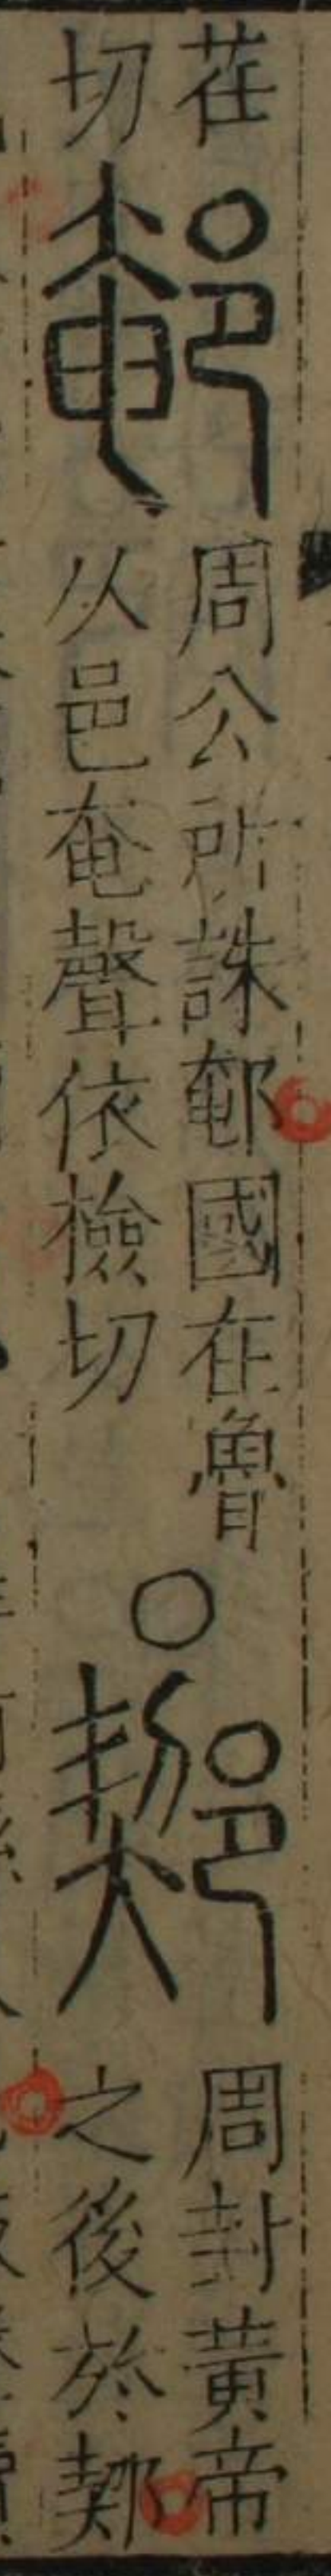 茌
切
䣍
周公所誅䣍國在魯
从邑奄聲依檢切
○
周封黃帝
之後於